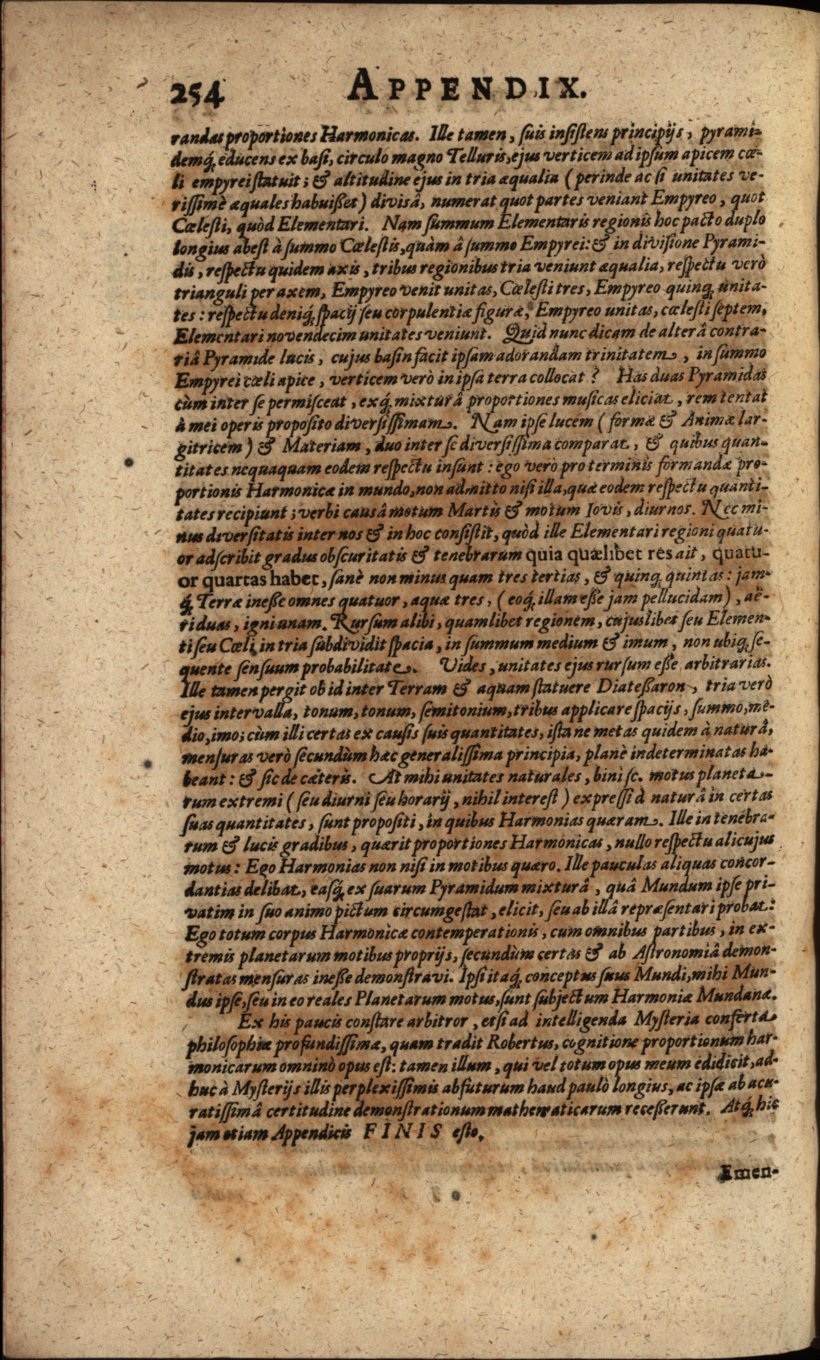 254 APPENDIX.
randas proportiones Harmonicas. Ille tamen, suis insistens principijs, pyrami-
demq́; educens ex basi, circulo magno Telluris, ejus verticem ad ipsum apicem cœ-
li empyrei statuit; & altitudine ejus in tria æqualia (perinde ac si unitates ve-
rissimè æquales habuißet) divisâ, numerat quot partes veniant Empyreo, quot
Cœlesti, quòd Elementari. Nam summum Elementaris regionis hoc pacto duplo
longius abest à summo Cœlestis, quàm â summo Empyrei: & in divisione Pyrami-
dis, respectu quidem axis, tribus regionibus tria veniunt æqualia, respectu verò
trianguli per axem, Empyreo venit unitas, Cœlesti tres, Empyreo quinq; unita-
tes: respectu deniq; spacij seu corpulentiæ figuræ, Empyreo unitas, cœlesti septem,
Elementari novendecim unitates veniunt. Quid nunc dicam de alterâ contra-
riâ Pyramide lucis, cujus basin facit ipsam adorandam trinitatem, in summo
Empyrei cœli apice, verticem verò in ipsa terra collocat? Has duas Pyramidas
cùm inter se permisceat, exq́; mixturâ proportiones musicas eliciat, rem tentat
à mei operis proposito diversissimam. Nam ipse lucem (formæ & Animæ lar-
gitricem) & Materiam, duo inter se diversissima comparat, & quibus quan-
titates nequaquam eodem respectu insunt: ego verò pro terminis formandæ pro-
portionis Harmonicæ in mundo, non admitto nisi illa, quæ eodem respectu quanti-
tates recipiunt; verbi causâ motum Martis & motum Jovis, diurnos. Nec mi-
nus diversitatis inter nos & in hoc consistit, quòd ille Elementari regioni quatu-
or adscribit gradus obscuritatis & tenebrarum quia quælibet res ait, quatu-
or quartas habet, sanè non minus quam tres tertias, & quinq; quintas: jam-
q́; Terræ ineße omnes quatuor, aquæ tres, (eoq́; illam eße jam pellucidam), aë-
ri duas, igni unam. Rursum alibi, quamlibet regionem, cujuslibet seu Elemen-
ti seu Cœli, in tria subdividit spacia, in summum medium & imum, non ubiq; se-
quente sensuum probabilitate. Vides, unitates ejus rursum eße arbitrarias.
Ille tamen pergit ob id inter Terram & aquam statuere Diateßaron, tria verò
ejus intervalla, tonum, tonum, semitonium, tribus applicare spacijs, summo, me-
dio, imo; cùm illi certas ex causis suis quantitates, ista ne metas quidem à naturâ,
mensuras verò secundùm hæc generalissima principia, planè indeterminatas ha-
beant: & sic de cæteris. At mihi unitates naturales, bini sc. motus planeta-
rum extremi (seu diurni seu horarij, nihil interest) expressi à naturâ in certas
suas quantitates, sunt propositi, in quibus Harmonias quæram. Ille in tenebra-
rum & lucis gradibus, quærit proportiones Harmonicas, nullo respectu alicujus
motus: Ego Harmonias non nisi in motibus quæro. Ille pauculas aliquas concor-
dantias delibat, easq́; ex suarum Pyramidum mixturâ, quâ Mundum ipse pri-
vatim in suo animo pictum circumgestat, elicit, seu ab illâ repræsentari probat:
Ego totum corpus Harmonicæ contemperationis, cum omnibus partibus, in ex-
tremis planetarum motibus proprijs, secundùm certas & ab Astronomiâ demon-
stratas mensuras ineße demonstravi. Ipsi itaq́; conceptus suus Mundi, mihi Mun-
dus ipse, seu in eo reales Planetarum motus, sunt subjectum Harmoniæ Mundanæ.
Ex his paucis constare arbitror, etsi ad intelligenda Mysteria conferta
philosophiæ profundissimæ, quam tradit Robertus, cognitione proportionum har-
monicarum omninò opus est: tamen illum, qui vel totum opus meum edidicit, ad-
huc à Mysterijs illis perplexissimis abfuturum haud paulò longius, ac ipsæ ab accu-
ratissimâ certitudine demonstrationum mathematicarum receßerunt. Atq́; hic
jam etiam Appendicis FINIS esto.
Emen-